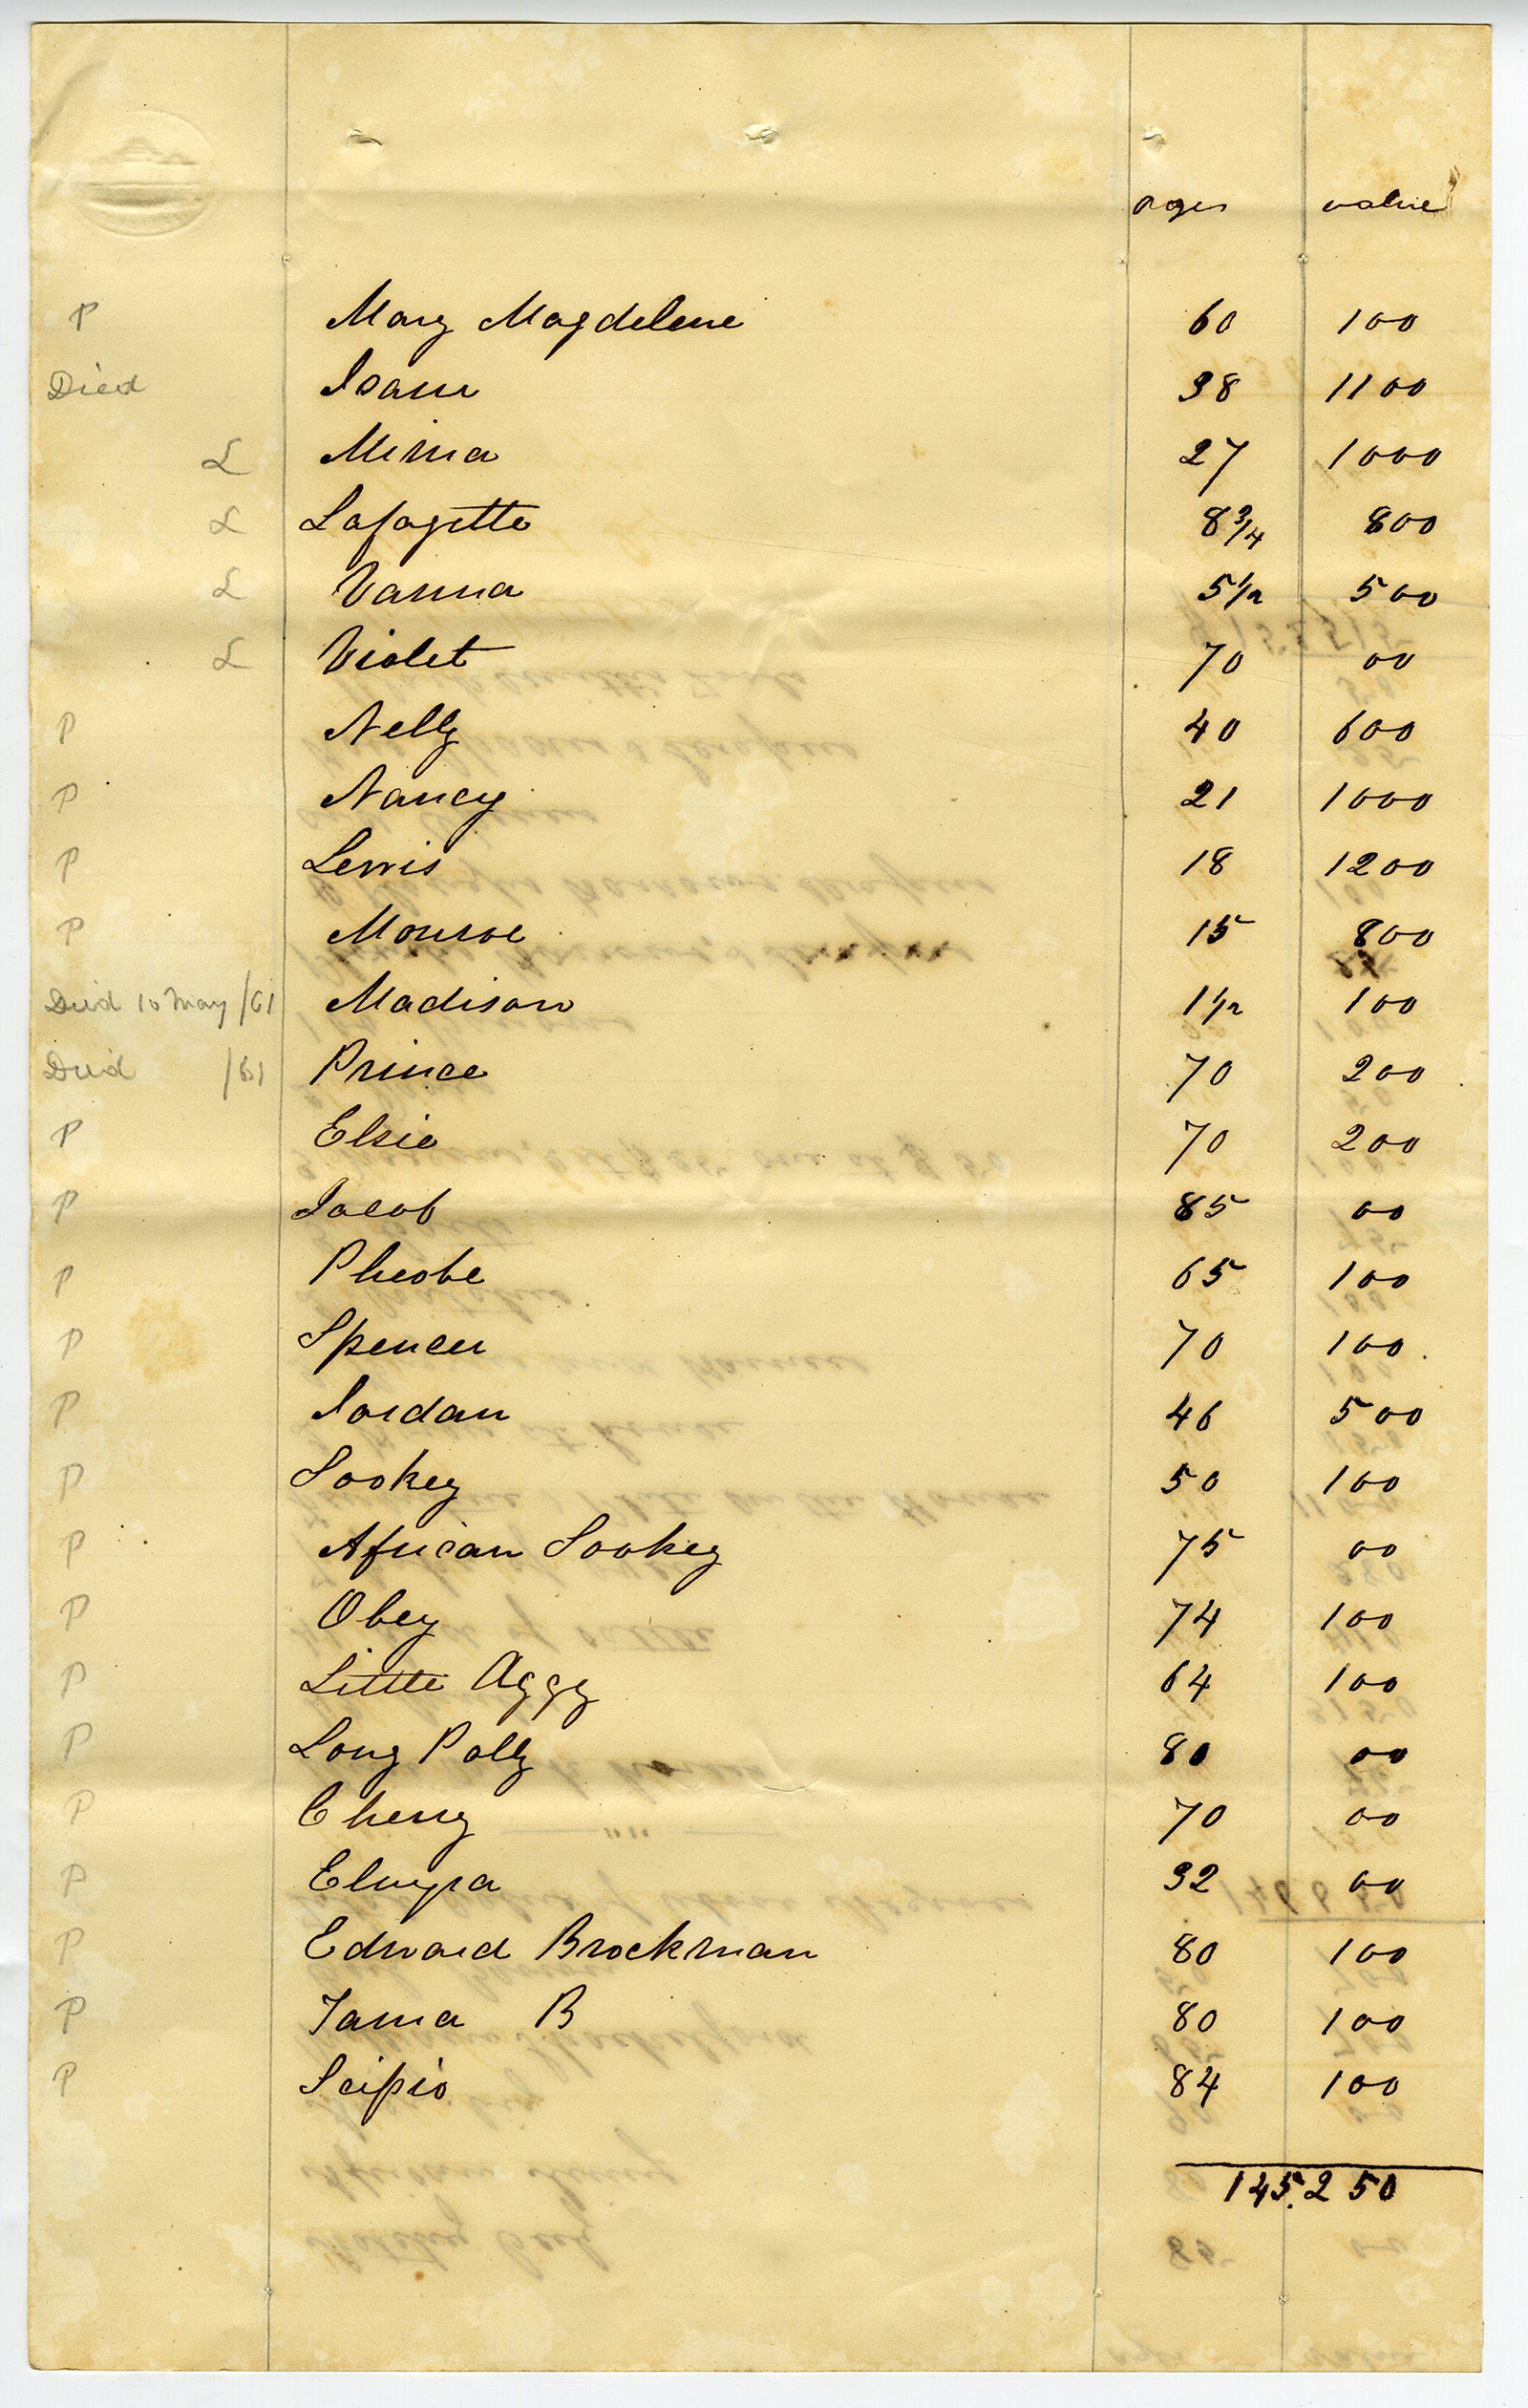 ages value
P Mary Magdelene 60 100
Died Isam 38 1100
L Mima 27 1000
L Lafayette 8 3/4 800
L Vanna 5 1/2 500
L Violet 70 00
P Nelly 40 600
P Nancy 21 1000
P Lewis 18 1200
P Monroe 15 800
Died 10 May /61 Madison 1 1/2 100
Died /61 Prince 70 200
P Elsie 70 200
P Jacob 85 00
P Pheobe 65 100
P Spencer 70 100
P Jordan 46 500
P Sookey 50 100
P African Sookey 75 00
P Obey 74 100
P Little Aggy 64 100
P Long Polly 80 00
P Cherry 70 00
P 32 00
P Edward Brockman 80 100
P Tama B 80 100
P Scipio 84 100
145.250